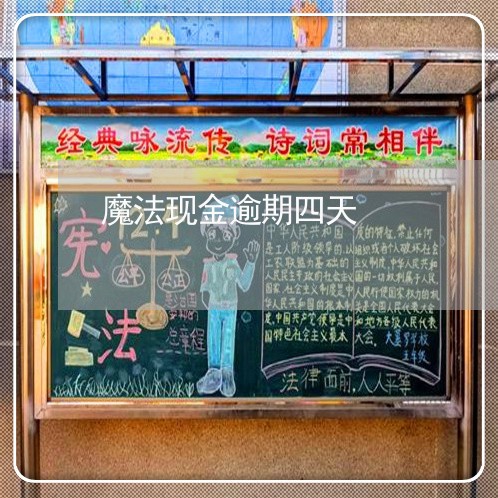 经典咏流传 诗词常相伴
魔法现金逾期四天
宪
法
公平
公正
总章程
中华人民共和国
是工人阶级领导的,以
工农联盟为基础的
人民民主专政的社会主义
国家,社会主义制度是中
华人民共和国的根本制
度,中国共产党领导是中
国特色社会主义最本
质的特征,禁止任何
组织或者个人破坏社会
主义制度,中华人民共和
国的一切权利属于人民,
人民行使国家权力的机
关是全国人民代表大会
和地方各级人民代表
大会。
五年级
法律面前,人人平等